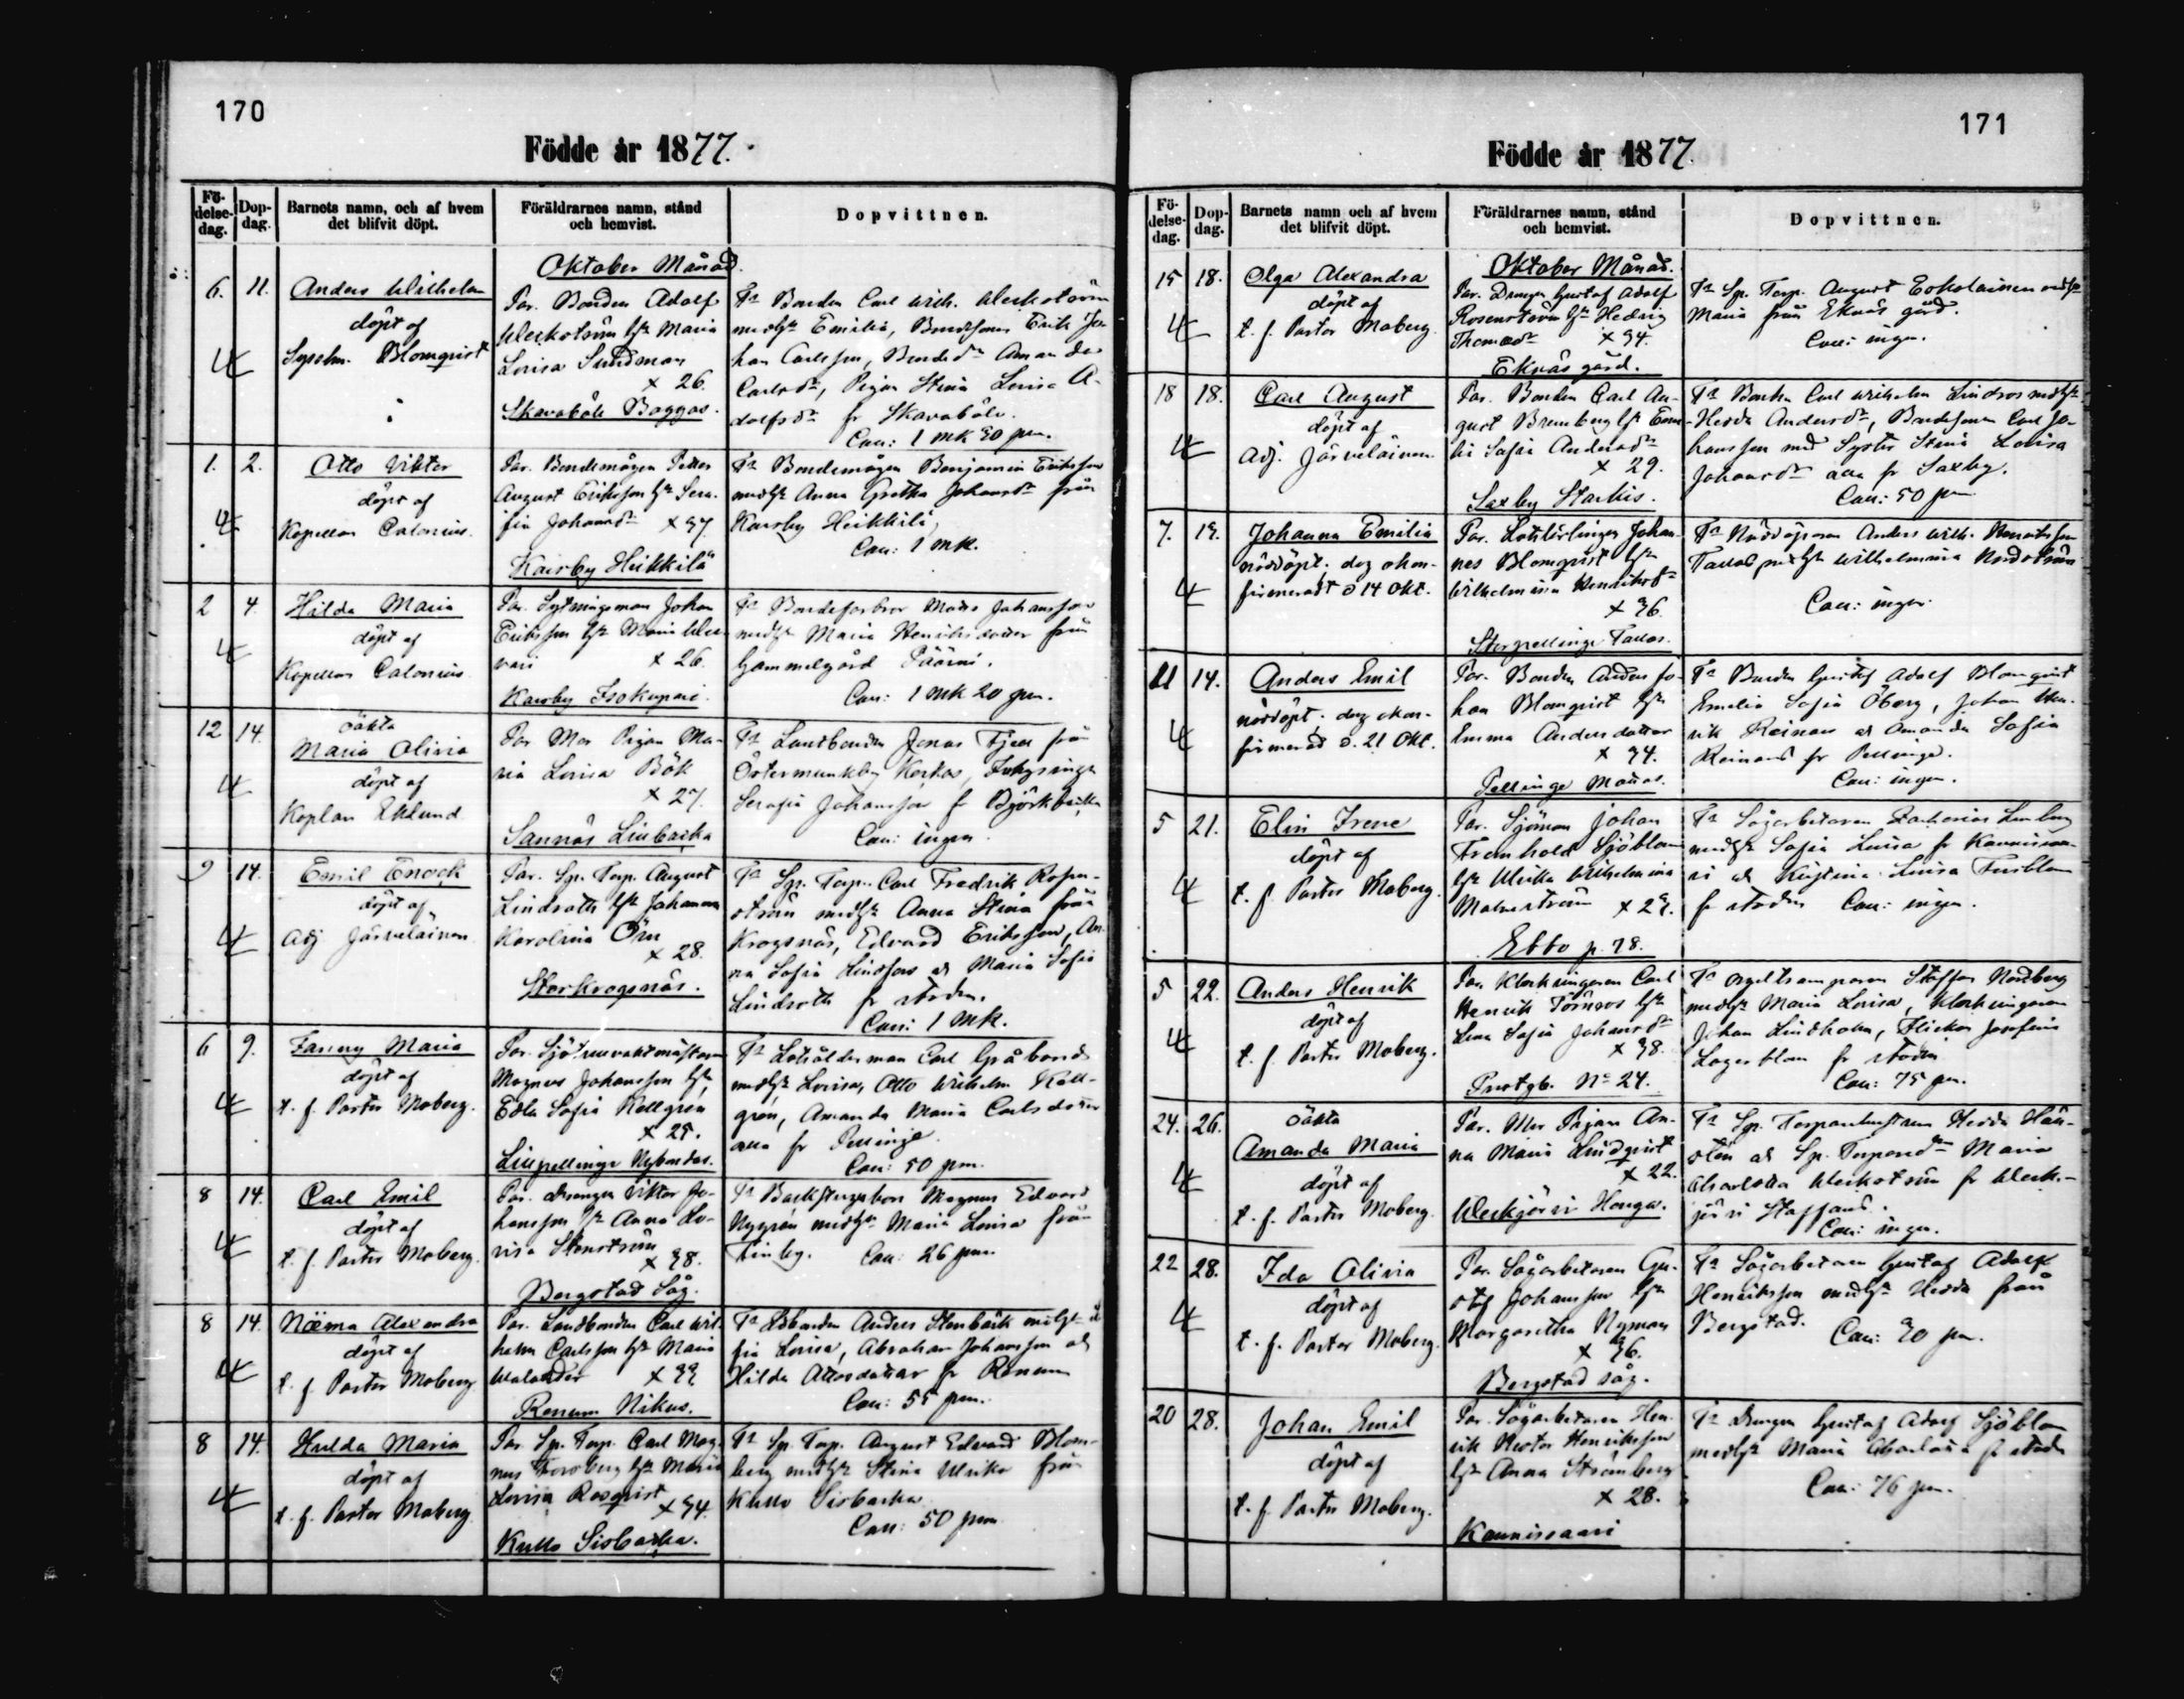 170
Födde år 1877.
Fö-
delse-
dag.
Dop-
dag.
Barnets namn, och af hvem
det blifvit döpt.
Föräldrarnes namn, stånd
och hemvist.
Dopvittnen.
Oktober Månad.
6. 11. Anders Wilhelm
döpt af
Sysslm. Blomqvist
Par. Bonden Adolf
Weckström hst Maria
Lovisa Sundman
x 26.
Skavaböle Baggas.
Tn Bonden Carl Wilh. Weckström
med hst Emilia, Bondesonen Erik Jo-
han Carlsson, Bondedr Amanda
Carlsdr, Pigan Stina Lovisa A-
dolfsdr fr Skavaböle.
Can: 1 mk 30 pm.
1. 2. Otto Viktor
döpt af
Kapellan Calonius.
Par. Bondemågen Petter
August Eriksson hst Sera-
fia Johansdr x 37.
Karsby Heikkilä
Tn Bondemågen Benjamin Eriksson
med hst Anna Gretha Johansdr från
Karsby Heikkilä,
Can: 1 mk.
2 4. Hilda Maria
döpt af
Kapellan Calonius
Par. Sytningsman Johan
Eriksson hst Maria
x 26.
Karsby Isokupari.
Maria Henriksdotter från
Gammelgård Päärni.
Can: 1 mk 20 pm.
12 14. oäkta
Maria Olivia
döpt af
Kaplan Eklund
Par Mor Pigan Ma-
ria Lovisa Bök
x 27.
Sannäs Linbacka
Tn Landbonden Jonas Fjell från
Östermunkby Korkas, Inhysinge
Serafia Johansson fr Björkbacka
Can: ingen.
9 14. Emil Enock
döpt af
Adj Järveläinen
Par. Sp. Torp. August
Lindroth hst Johanna
Karolina Örn
x 28.
Storkrogsnäs.
Tn Sp. Torp. Carl Fredrik Rosen-
ström med hst Anna Stina från
Krogsnäs, Edvard Eriksson, An-
na Sofia Lindfors ock Maria Sofia
Lindroth fr staden.
Can: 1 mk.
6 9. Fanny Maria
döpt af
t. f. Pastor Moberg.
Par. Sjötullvaktmästaren
Magnus Johansson hst
Edla Sofia Kellgren
x 25.
Lillpellinge Nybondas.
Tn Lotsålderman Carl Gråbonds
med hst Lovisa, Otto Wilhelm Käll-
gren, Amanda Maria Carlsdotter
alla fr Pellinge.
Can: 50 pm.
8 14. Carl Emil
döpt af
t. f. Pastor Moberg.
Par. Drengen Viktor Jo-
hansson hst Anna Lo-
visa Stenström
x 38.
Bergstad Såg.
Tn Backstugukarl Magnus Edvard
Nygrén med hst Maria Lovisa från
Finby. Can: 26 pm.
8 14. Naëma Alexandra
döpt af
t. f. Pastor Moberg
Par. Landbonden Carl Wil-
helm Carlsson hst Maria
Walander x 33
Renum Nikus.
Tn Ldbonden Anders Stenbäck
Lovisa, Abraham Johansson ock
Hilda fr Renum
Can: 55 pm.
8 14. Hulda Maria
döpt af
t. f. Pastor Moberg
Par. Sp. Torp. Carl Mag-
nus Forsberg hst Maria
Lovisa Rosqvist
x 34.
Kullo Sisbacka.
Tn Sp. Torp. August Edvard Blom-
berg med hst Stina Ulrika från
Kullo Sisbacka
Can: 50 pm
171
Födde år 1877.
Fö-
delse-
dag.
Dop-
dag.
Barnets namn och af hvem
det blifvit döpt.
Föräldrarnes namn, stånd
och hemvist.
Dopvittnen.
Oktober Månad.
15 18. Olga Alexandra
döpt af
t. f. Pastor Moberg.
Par. Drengen Gustaf Adolf
Rosenström hst Hedvig
Thomasdr x 34.
Eknäs gård.
Tn Sp. Torp. August Eskolainen
Maria från Eknäs gård.
Can: ingen.
18 18. Carl August
döpt af
Adj. Järveläinen
Par. Bonden Carl Au-
gust Bremberg hst Emi-
li Sofia Andersdr
x 29.
Saxby Starkis.
Tn Bonden Carl Wilhelm Lindros med hst
Hedda Andersdr, Bondesonen Carl Jo-
hansson med Syster Stina Lovisa
Johansdr alla fr Saxby.
Can: 50 pm
7. 19. Johanna Emilia
nöddöpt. dop okon-
firmeradt d 14 Okt.
Par. Lotslärlingen Johan-
nes Blomqvist hst
Wilhelmina Henriksdr
x 36.
Storpellinge Tallas.
Tn Nöddöparen Anders Wilh. Henriksson
Tallas med hst Wilhelmina Nordström
Can: ingen.
11 14. Anders Emil
nöddöpt. dop okon-
firmerad d. 21 Okt.
Par. Bonden Anders Jo-
han Blomqvist hst
Emma Andersdotter
x 34.
Pellinge Månas.
Tn Bonden Gustaf Adolf Blomqvist
Emelia Sofia Öberg, Johan Hen-
rik Reinas ock Amanda Sofia
Reinas fr Pellinge.
Can: ingen.
5 21. Elin Irene
döpt af
t. f. Pastor Moberg.
Par. Sjöman Johan
Fromhold Sjöblom
hst Ulrika Wilhelmina
Malmström x 29.
Ebbo p. 78.
Tn Sågarbetaren Zacharias Lunberg
med hst Sofia Lovisa fr Kaunissaa-
ri ock Kristina Lovisa Furublom
fr staden Can: ingen.
5 22. Anders Henrik
döpt af
t. f. Pastor Moberg.
Par. Klockringaren Carl
Henrik Törnroos hst
Lena Sofia Johansdr
x 38.
Prostgb. No 24.
Tn Orgeltramparen Staffan Nordberg
med hst Maria Lovisa, Klockringaren
Johan Lindholm, Flickan Josefina
Lagerblom fr staden
Can: 75 pm.
24. 26. oäkta
Amanda Maria
döpt af
t. f. Pastor Moberg.
Par. Mor Pigan An-
na Maria Lindqvist
x 22.
Weckjärvi Honga.
Tn Sp. Torparehustrun Hedda Häll-
stén ock Sp. Torparedr Maria
Charlotta Weckström fr Weck-
järvi Staffans.
Can: ingen.
22 28. Ida Olivia
döpt af
t. f. Pastor Moberg.
Par. Sågarbetaren Gu-
staf Johansson hst
Margaretha Nyman
x 36.
Bergstad såg.
Tn Sågarbetaren Gustaf Adolf
Henriksson med hst Hedda från
Bergstad. Can: 30 pm.
20 28. Johan Emil
döpt af
t. f. Pastor Moberg.
Par. Sågarbetaren Hen-
rik Nestor Henriksson
hst Anna Strömberg
x 28.
Kaunissaari
Tn Drengen Gustaf Adolf Sjöblom
med hst Maria Charlotta fr staden
Can: 76 pm.